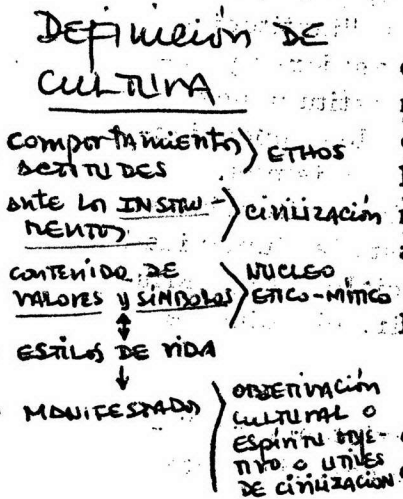 Definición DE
CULTURA
comportamiento ACTITUDES } ETHOS
ante los INSTRUMENTOS } civilización
contenido DE VALORES y SÍMBOLOS } NUCLEO ETICO-MÍTICO
↕
ESTILOS DE VIDA
↓
MANIFESTADO } OBJETIVACIÓN
CULTURAL O
ESPÍRITU OBJE-
TIVO O UTILES
DE CIVILIZACIÓN